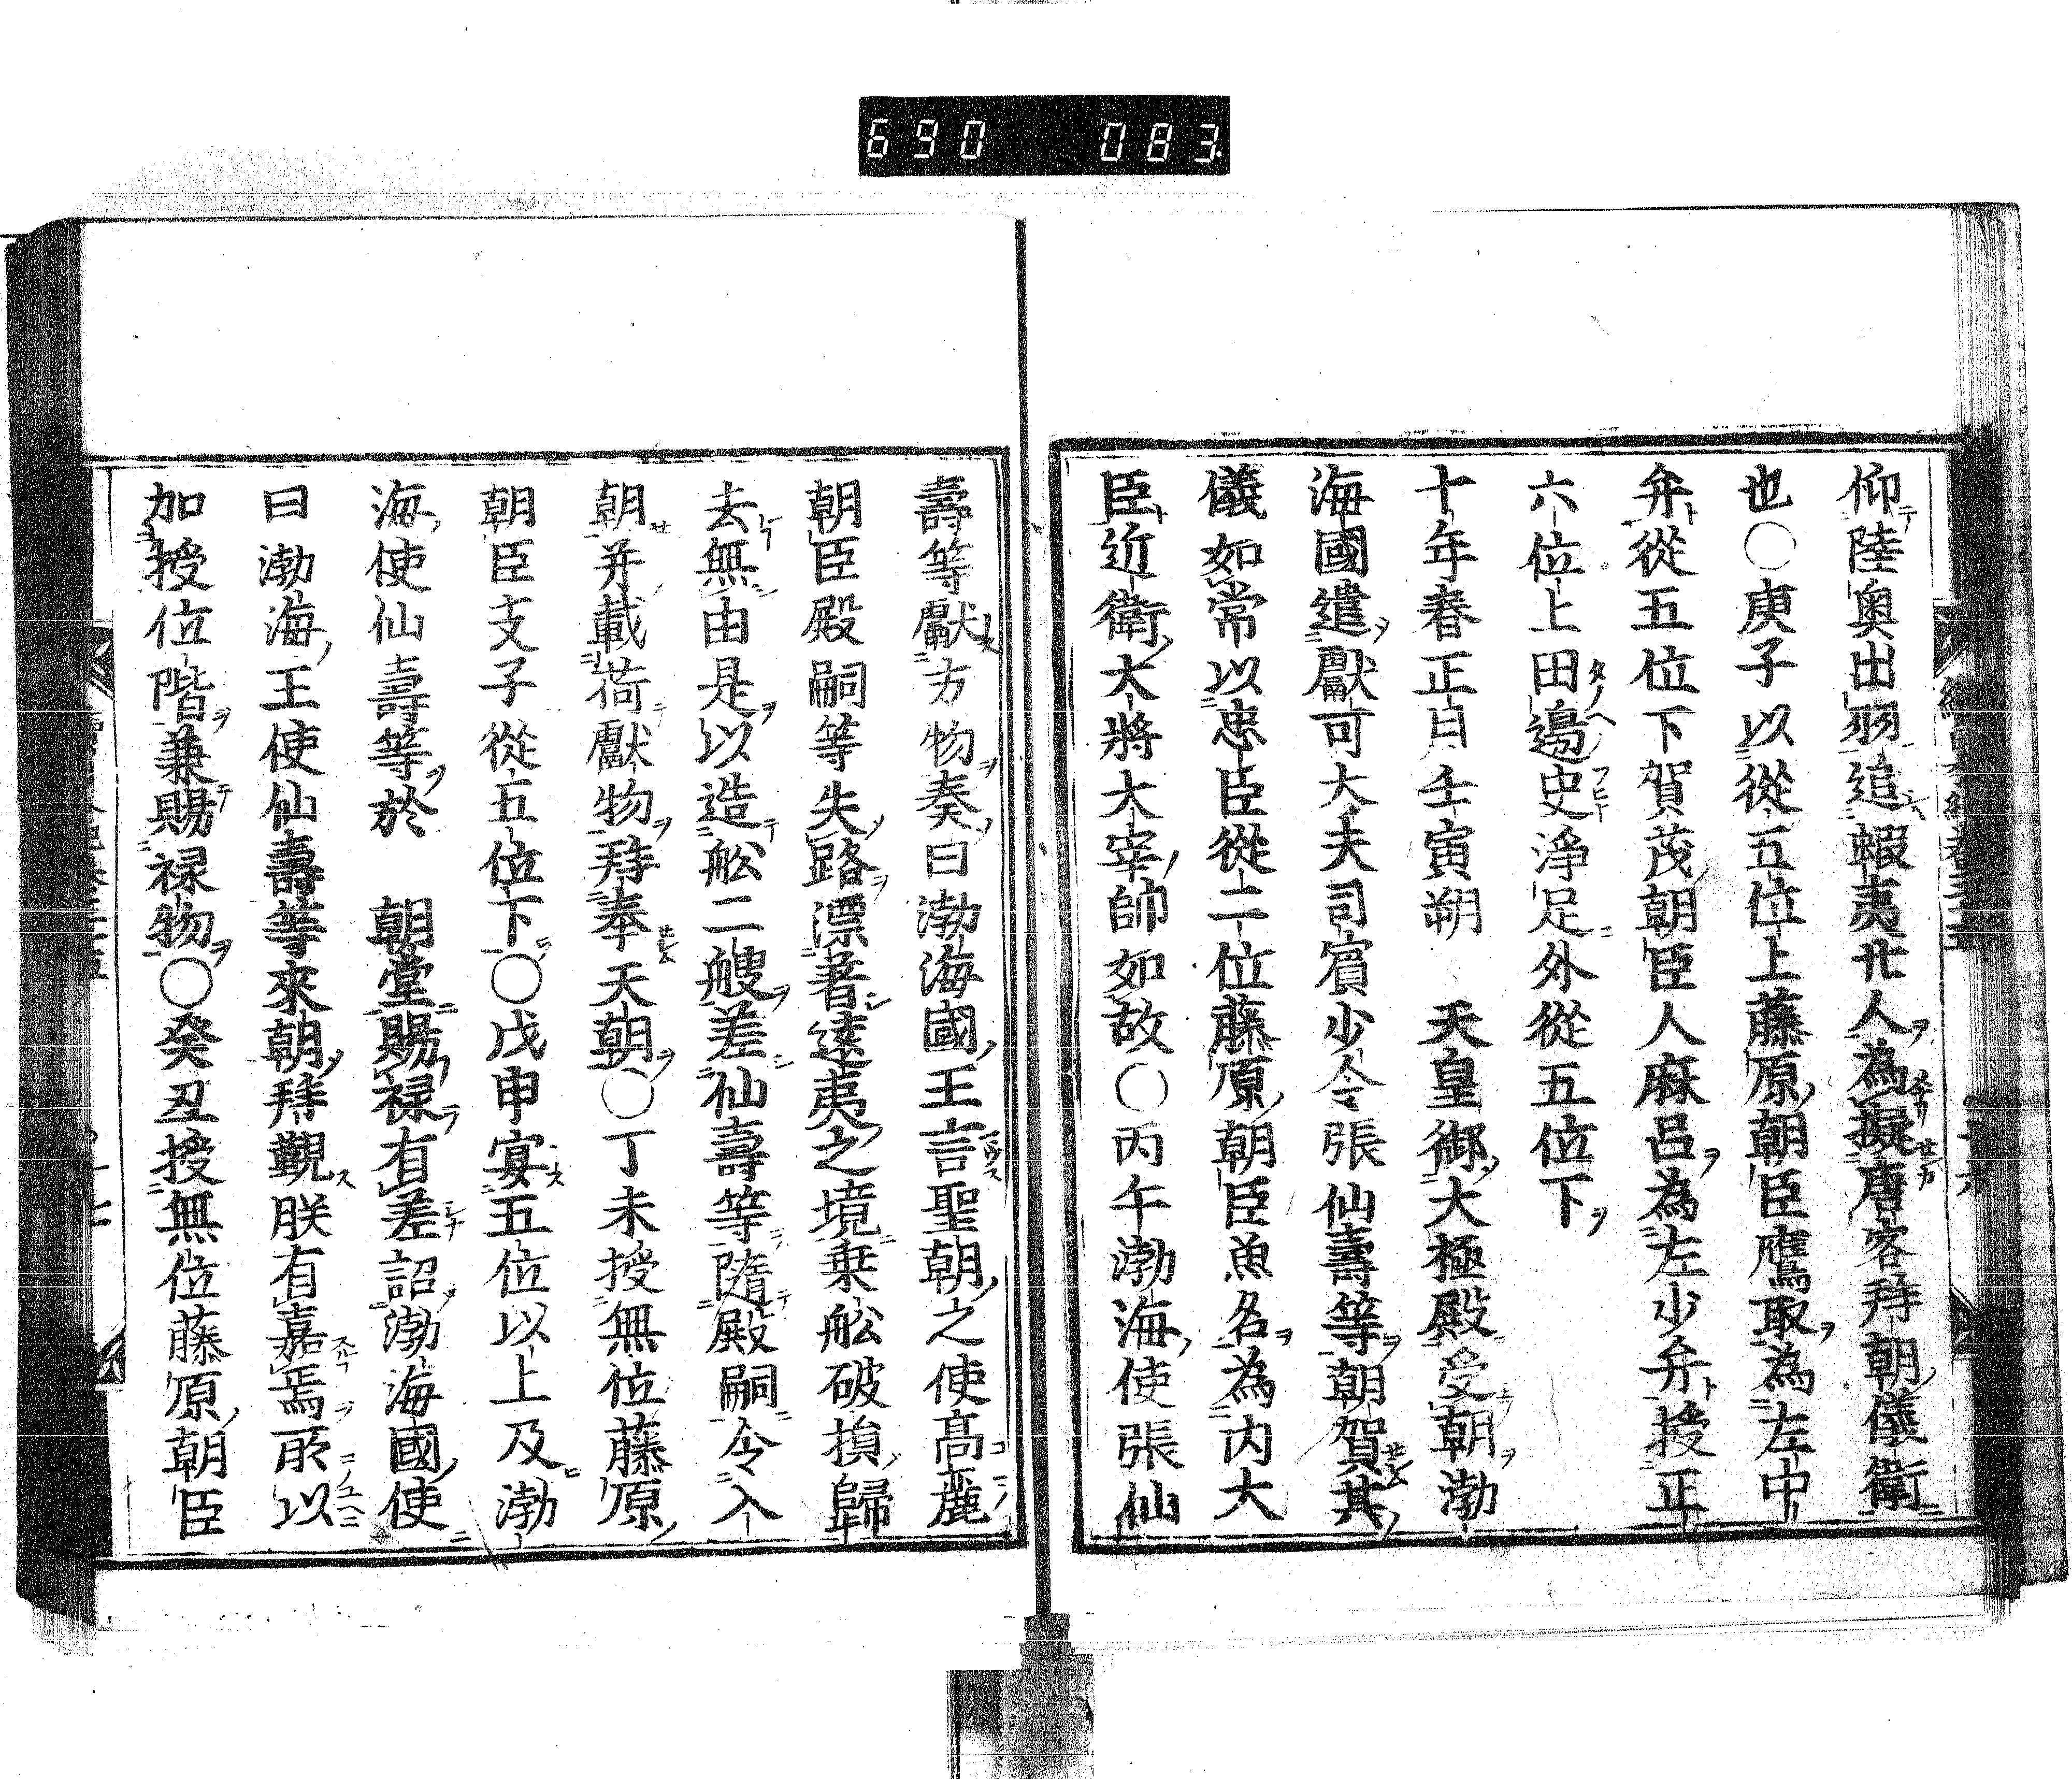 690 083
仰陸奥出羽追蝦夷廿人為擬唐客拜朝儀衛
也○庚子以從五位上藤原朝臣鷹取為左中
弁從五位下賀茂朝臣人麻呂為左少弁授正
六位上田邊史淨足外從五位下
十年春正月壬寅朔　天皇御大極殿受朝渤
海國遣獻可大夫司賓少令張仙壽等朝賀其
儀如常以忠臣從二位藤原朝臣魚名為内大
臣近衛大將大宰帥如故○丙午渤海使張仙
壽等獻方物奏曰渤海國王言聖朝之使髙麗
朝臣殿嗣等失路漂著遠夷之境乗舩破損歸
去無由是以造舩二艘差仙壽等隨殿嗣令入
朝并載荷獻物拜奉天朝○丁未授無位藤原
朝臣支子從五位下○戊申宴五位以上及渤
海使仙壽等於　朝堂賜禄有差詔渤海國使
曰渤海王使仙壽等來朝拜覲朕有嘉焉所以
加授位階兼賜禄物○癸丑授無位藤原朝臣